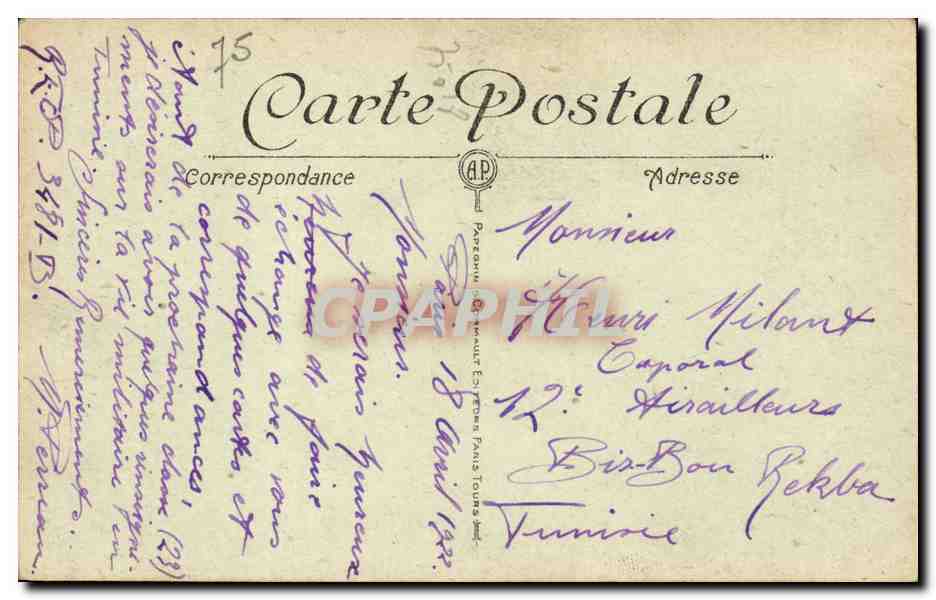 75
Carte Postale
Correspondance
A.P.
Adresse
PAPEGHIN-GRIMAULT EDITEURS PARIS TOURS
CPARAMA
Paris 18 Avril 1922.
Monsieur.
Je serais heureux
de faire
échange avec vous
de quelques cartes et
correspondances.
Avant de la prochaine classe (23)
je désirerais avoir quelques renseigne-
ments sur la vie militaire en
Tunisie. Sincères Remerciements.
3491-B.
Monsieur
Henri Milant
Caporal
12e Tirailleurs
Bir-Bou Rekba
Tunisie